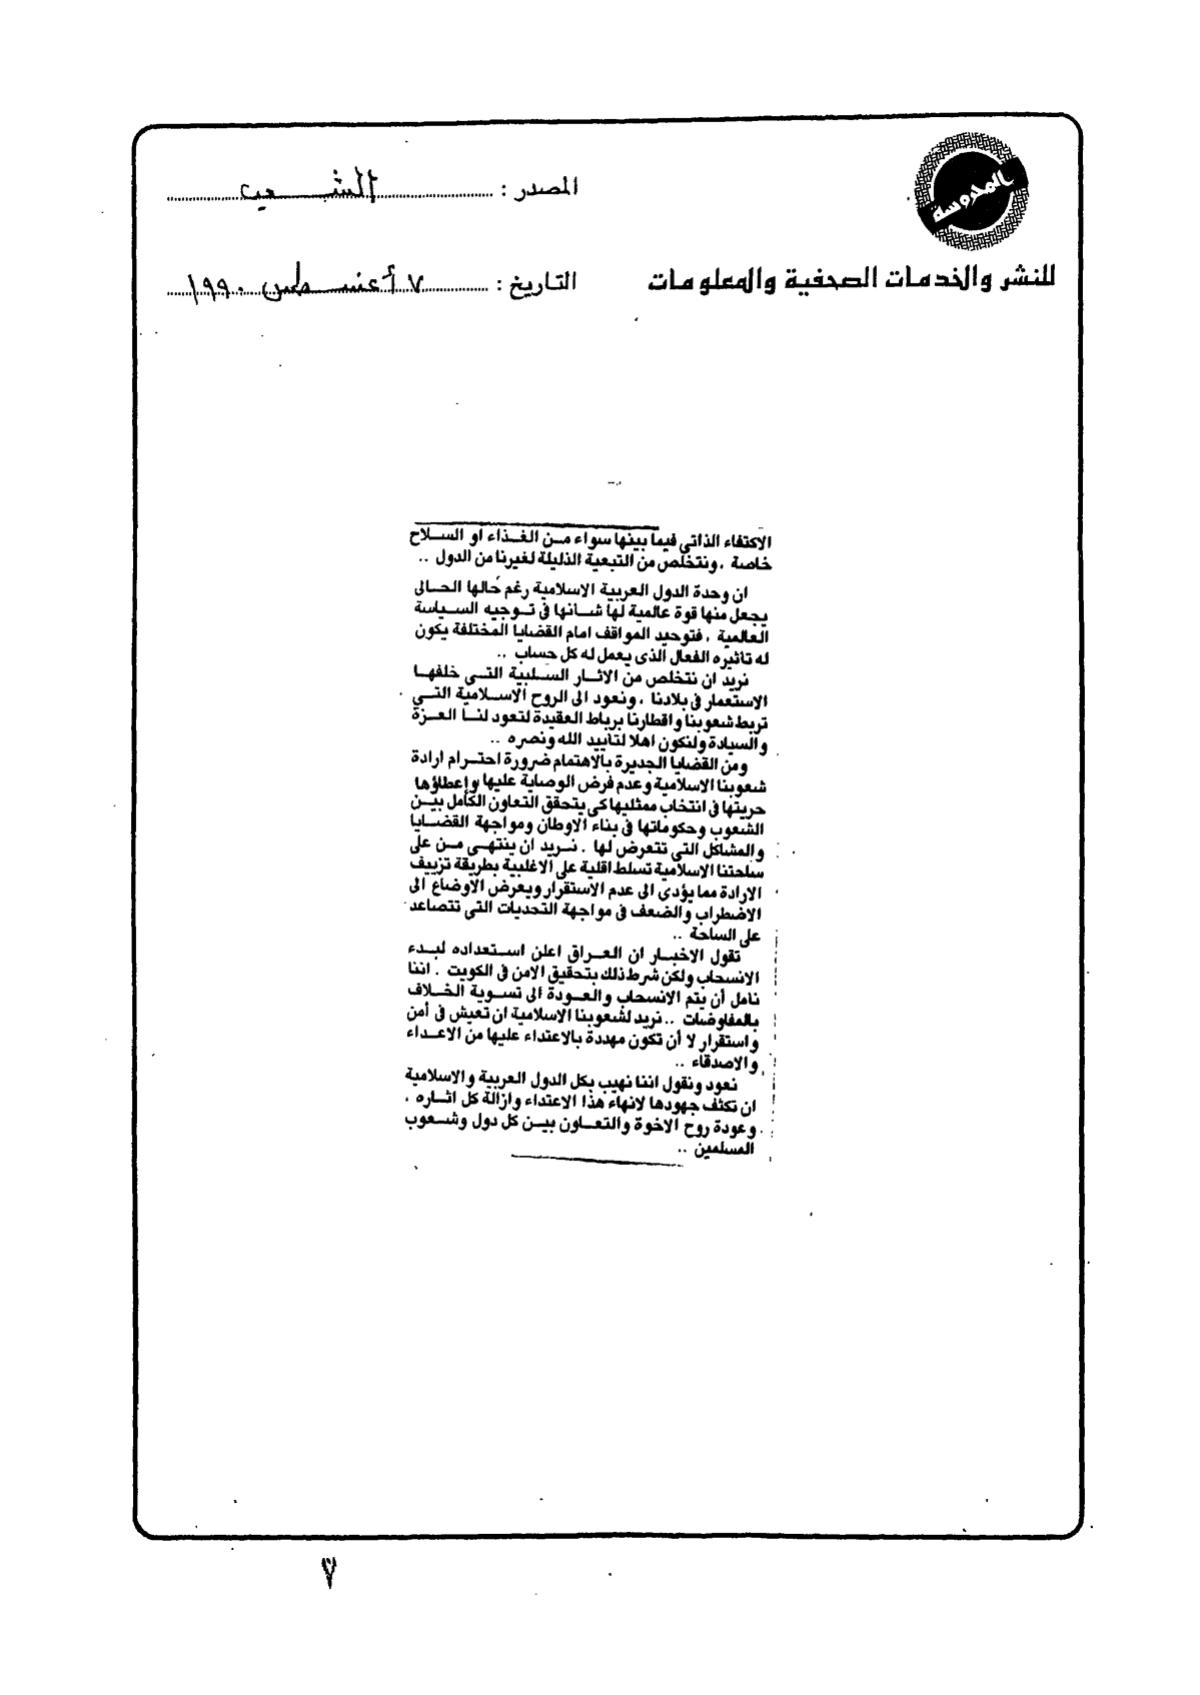 المحروسة
للنشر والخدمات الصحفية والمعلومات
المصدر : الشعب
التاريخ : ٧ أغسطس ١٩٩٠
الاكتفاء الذاتى فيما بينها سواء مـن الغـذاء او السـلاح
خاصة ، ونتخلص من التبعية الذليلة لغيرنا من الدول ..
ان وحدة الدول العربية الاسلامية رغم حالها الحـالى
يجعل منها قوة عالمية لها شـانها فى تـوجيه السـياسة
العالمية ، فتوحيد المواقف امام القضايا المختلفة يكون
له تاثيره الفعال الذى يعمل له كل حساب ..
نريد ان نتخلص من الاثـار السـلبية التـى خلفهـا
الاستعمار فى بلادنا ، ونعود الى الروح الاسـلامية التـى
تربط شعوبنا واقطارنا برباط العقيدة لتعود لنـا العـزة
والسيادة ولنكون اهلا لتأييد الله ونصره ..
ومن القضايا الجديرة بالاهتمام ضرورة احتـرام ارادة
شعوبنا الاسلامية وعدم فرض الوصاية عليها وإعطاؤها
حريتها فى انتخاب ممثليها كى يتحقق التعاون الكامل بيـن
الشعوب وحكوماتها فى بناء الاوطان ومواجهة القضـايا
والمشاكل التى تتعرض لها . نـريد ان ينتهـى مـن على
ساحتنا الاسلامية تسلط اقلية على الاغلبية بطريقة تزييف
الارادة مما يؤدى الى عدم الاستقرار ويعرض الاوضاع الى
الاضطراب والضعف فى مواجهة التحديات التى تتصاعد
على الساحة ..
تقول الاخبـار ان العـراق اعلن اسـتعداده لبـدء
الانسحاب ولكن شرط ذلك بتحقيق الامن فى الكويت . اننا
نامل أن يتم الانسحاب والعـودة الى تسوية الخـلاف
بالمفاوضات .. نريد لشعوبنا الاسلامية ان تعيش فى أمن
واستقرار لا أن تكون مهددة بالاعتداء عليها من الاعـداء
والاصدقاء ..
نعود ونقول اننا نهيب بكل الدول العربية والاسلامية
ان تكثف جهودها لانهاء هذا الاعتداء وازالة كل اثـاره ،
وعودة روح الاخوة والتعـاون بيـن كل دول وشـعوب
المسلمين ..
٧